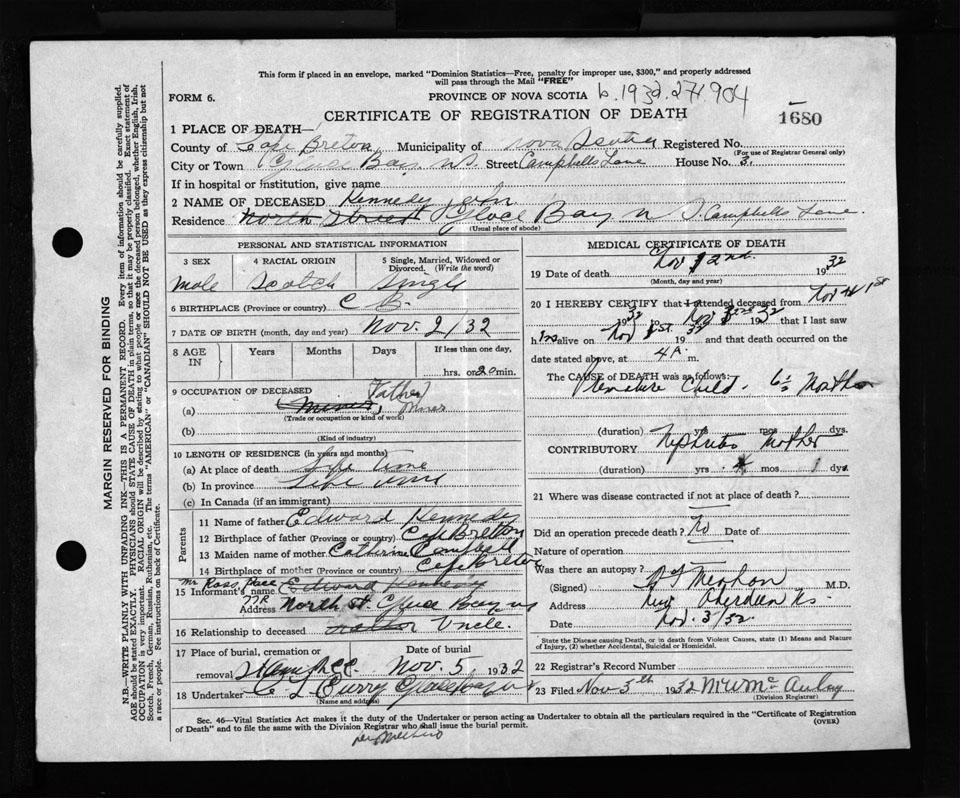 This form if placed in an envelope, marked "Dominion Statistics—Free, penalty for improper use, $300," and properly addressed
will pass through the Mail "FREE"
FORM 6.
PROVINCE OF NOVA SCOTIA b. 1932. 271904
CERTIFICATE OF REGISTRATION OF DEATH
1680
1 PLACE OF DEATH—
County of Cape Breton Municipality of Nova Scotia Registered No.
(For use of Registrar General only)
City or Town Glace Bay NS. Street Campbells Lane House No. 3.
If in hospital or institution, give name
2 NAME OF DECEASED Kennedy
Residence North Street Glace Bay N S Campbells Lane.
(Usual place of abode)
PERSONAL AND STATISTICAL INFORMATION
3 SEX
4 RACIAL ORIGIN
5 Single, Married, Widowed or Divorced. (Write the word)
male Scotch Single
6 BIRTHPLACE (Province or country) C B.
7 DATE OF BIRTH (month, day and year) Nov. 2/32
8 AGE IN
Years Months Days If less than one day,
hrs. or 20 min.
9 OCCUPATION OF DECEASED Father
(a) Miner, Miner
(Trade or occupation or kind of work)
(b)
(Kind of industry)
10 LENGTH OF RESIDENCE (in years and months)
(a) At place of death Life Time
(b) In province Life Time
(c) In Canada (if an immigrant)
Parents
11 Name of father Edward Kennedy
12 Birthplace of father (Province or country) Cape Breton
13 Maiden name of mother Catherine Campbell
14 Birthplace of mother (Province or country) Cape Breton
Mr Ross,
15 Informant's name Edward Kennedy
Address North St. Glace Bay NS
16 Relationship to deceased Uncle.
17 Place of burial, cremation or removal
Date of burial
Nov. 5, 1932
18 Undertaker C L Curry Glace Bay NS
(Name and address)
MEDICAL CERTIFICATE OF DEATH
19 Date of death Nov 2nd. 1932
(Month, day and year)
20 I HEREBY CERTIFY that I attended deceased from Nov 1st
1932 Nov 2nd 1932 that I last saw
h im alive on Nov 1st. 1932 and that death occurred on the
date stated above, at 4 A. m.
The CAUSE of DEATH was as follows:
Premature Child. 6½ Months
(duration) yrs mos dys.
CONTRIBUTORY Nephritis Mother
(duration) yrs mos 1 dys.
21 Where was disease contracted if not at place of death?
Did an operation precede death? No Date of
Nature of operation
Was there an autopsy?
(Signed) M.D.
Address Aberdeen NS.
Date Nov. 3/32.
State the Disease causing Death, or in death from Violent Causes, state (1) Means and Nature
of Injury, (2) whether Accidental, Suicidal or Homicidal.
22 Registrar's Record Number
23 Filed Nov 3th 1932 M W McAulay
(Division Registrar)
Sec. 46—Vital Statistics Act makes it the duty of the Undertaker or person acting as Undertaker to obtain all the particulars required in the "Certificate of Registration
of Death" and to file the same with the Division Registrar who shall issue the burial permit.
(OVER)
MARGIN RESERVED FOR BINDING
N.B.—WRITE PLAINLY WITH UNFADING INK—THIS IS A PERMANENT RECORD. Every item of information should be carefully supplied.
AGE should be stated EXACTLY. PHYSICIANS should STATE CAUSE OF DEATH in plain terms, so that it may be properly classified. Exact statement of
OCCUPATION is very important. RACIAL ORIGIN will be described by stating to what people or race the deceased person belonged, whether English, Irish,
Scotch, French, German, Russian, Ruthenian, etc. The terms "AMERICAN" or "CANADIAN" SHOULD NOT BE USED as they express citizenship but not
a race or people. See instructions on back of Certificate.